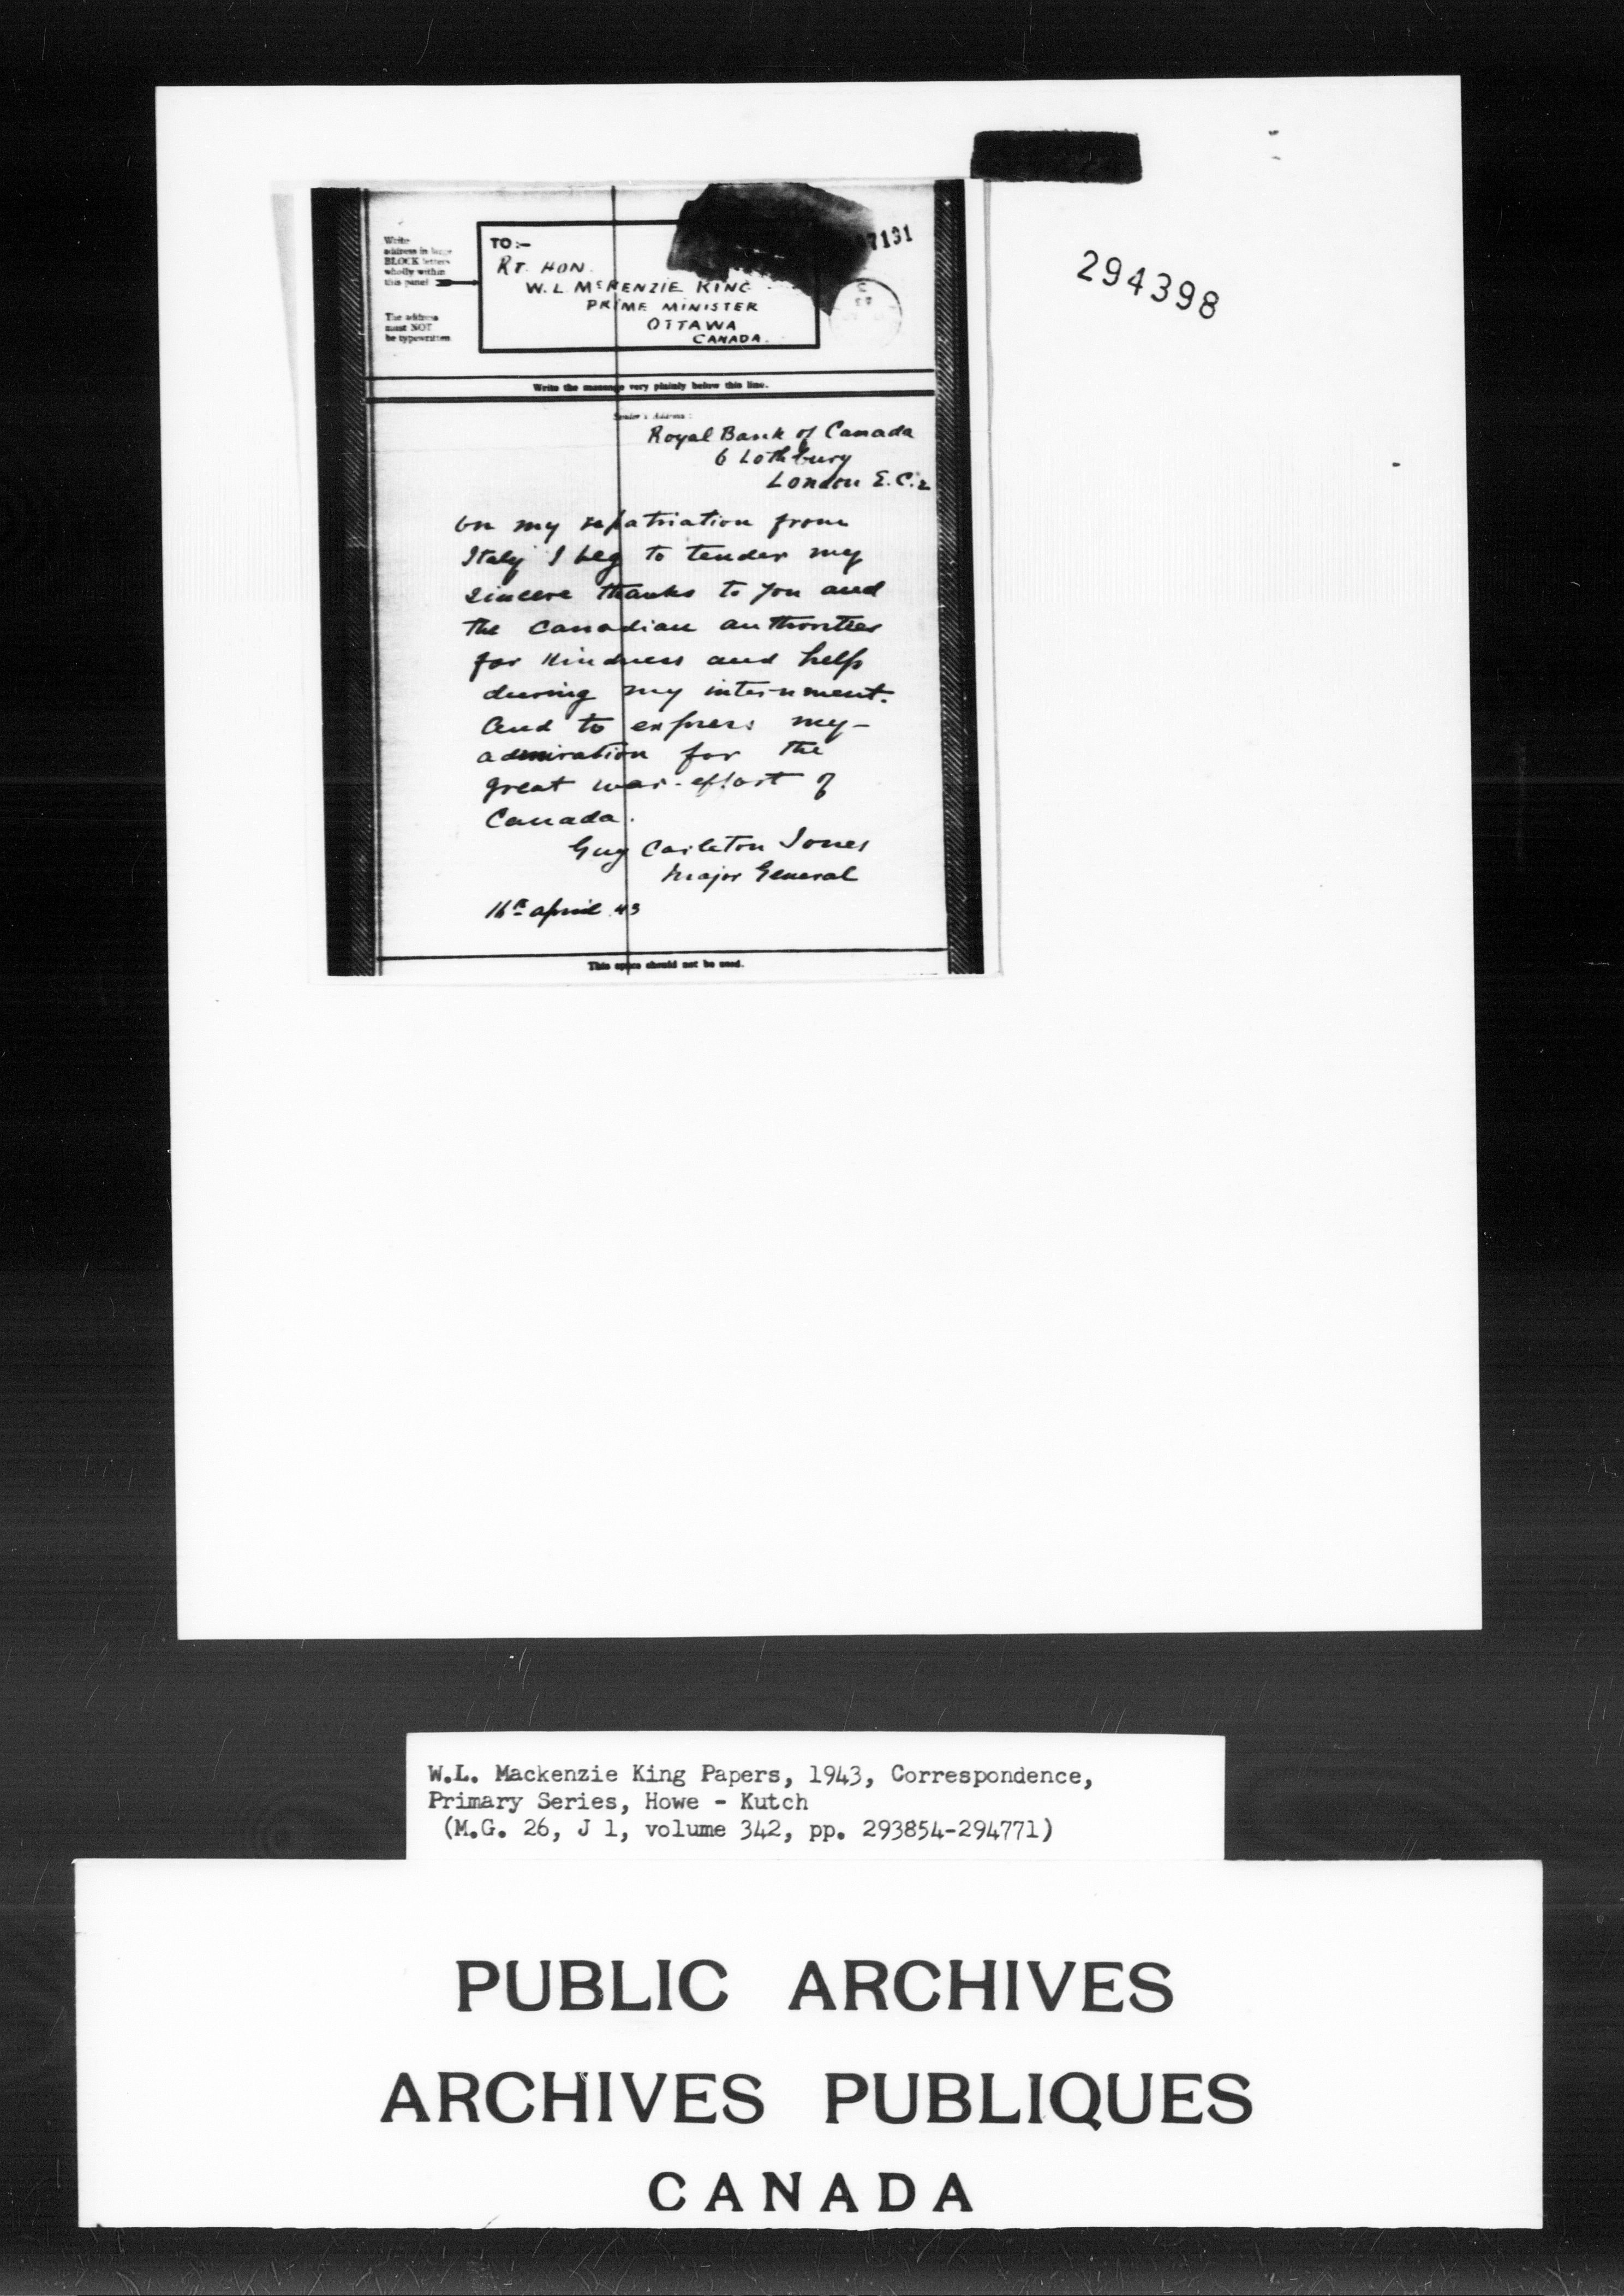 294398
7131
Write
address in large
BLOCK letters
wholly within
this panel
The address
must NOT
be typewritten
TO :-
RT. HON.
W. L McKENZIE KING
PRIME MINISTER
OTTAWA
CANADA.
Write the message very plainly below this line.
Sender's Address :
Royal Bank of Canada
6 Lothbury
London E.C.2
On my repatriation from
Italy I beg to tender my
sincere thanks to you and
the Canadian authorities
for kindness and help
during my internment.
And to express my-
admiration for the
great war-effort of
Canada.
Guy Carleton Jones
Major General
16th april 43
This space should not be used.
W.L. Mackenzie King Papers, 1943, Correspondence,
Primary Series, Howe - Kutch
(M.G. 26, J 1, volume 342, pp. 293854-294771)
PUBLIC ARCHIVES
ARCHIVES PUBLIQUES
CANADA